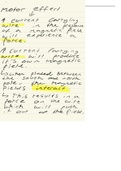 Motor Effect
A current carrying
wire in the presence
of a magnetic field
will experience a
force.
A current carrying
wire will produce
it's own magnetic
field.
when placed between
the south and north
pole, the magnetic
fields interact
↳ This results in a
force on the wire
which will push
it out of the field.